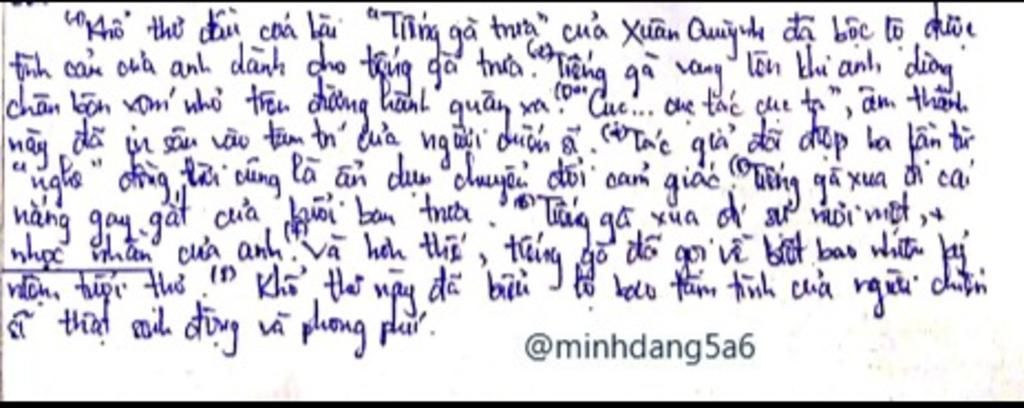 (1)Khổ thơ đầu của bài "Tiếng gà trưa" của Xuân Quỳnh đã bộc lộ được
tình cảm của anh dành cho tiếng gà trưa. (2)Tiếng gà vang lên khi anh dừng
chân bên xóm nhỏ trên đường hành quân xa. (3)"Cục... cục tác cục ta", âm thanh
này đã in sâu vào tâm trí của người chiến sĩ. (4)Tác giả đã điệp ba lần từ
"nghe" đồng thời cũng là ẩn dụ chuyển đổi cảm giác. (5)Tiếng gà xua đi cái
nắng gay gắt của buổi ban trưa. (6)Tiếng gà xua đi sự mỏi mệt,
nhọc nhằn của anh. (7)Và hơn thế, tiếng gà đã gọi về biết bao nhiêu kỷ
niệm tuổi thơ. (8) Khổ thơ này đã biểu lộ tâm tình của người chiến
sĩ thật sinh động và phong phú.
@minhdang5a6